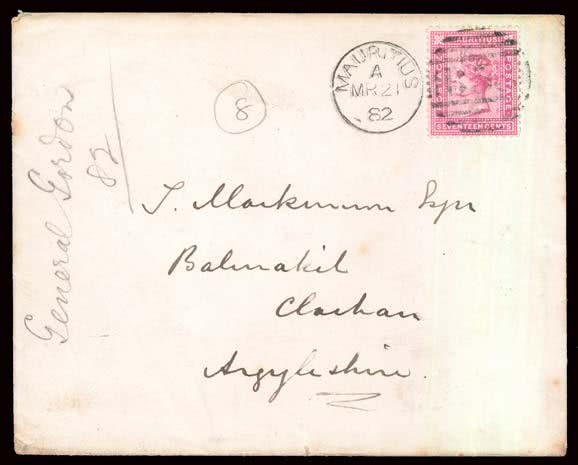 General Gordon
82
8
MAURITIUS
A
MR 21
82
MAURITIUS
POSTAGE
SEVENTEEN CENTS
J. Mackinnon Esqr
Balinakil
Clachan
Argyleshire.